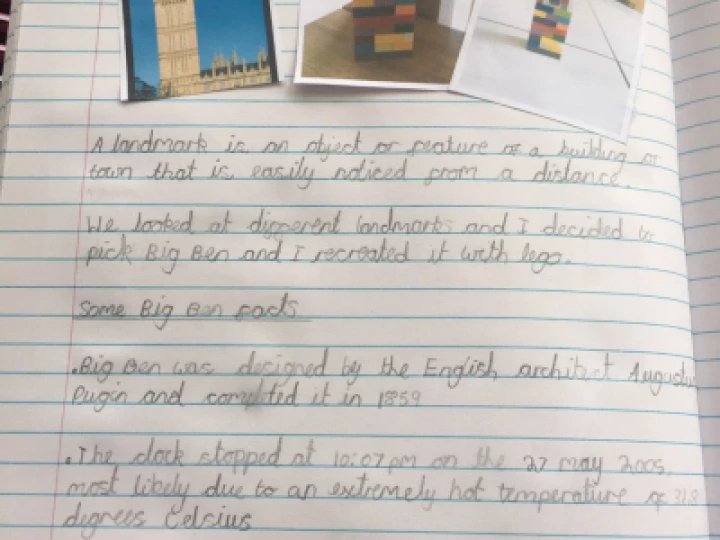 A landmark is an object or feature of a building or
town that is easily noticed from a distance.
We looked at different landmarks and I decided to
pick Big Ben and I recreated it with lego.
Some Big Ben facts
.Big Ben was designed by the English architect Augustus
Pugin and completed it in 1859
.The clock stopped at 10:07pm on the 27 may 2005,
most likely due to an extremely hot temperature of 31.8
degrees Celsius